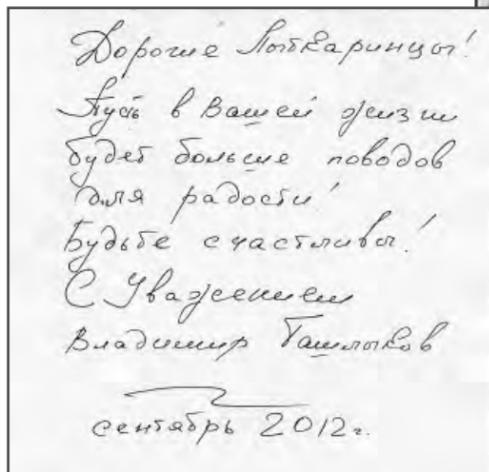 Дорогие Лыткаринцы!
Пусть в Вашей жизни
будет больше поводов
для радости!
Будьте счастливы!
С Уважением
Владимир Ташлыков
сентябрь 2012г.